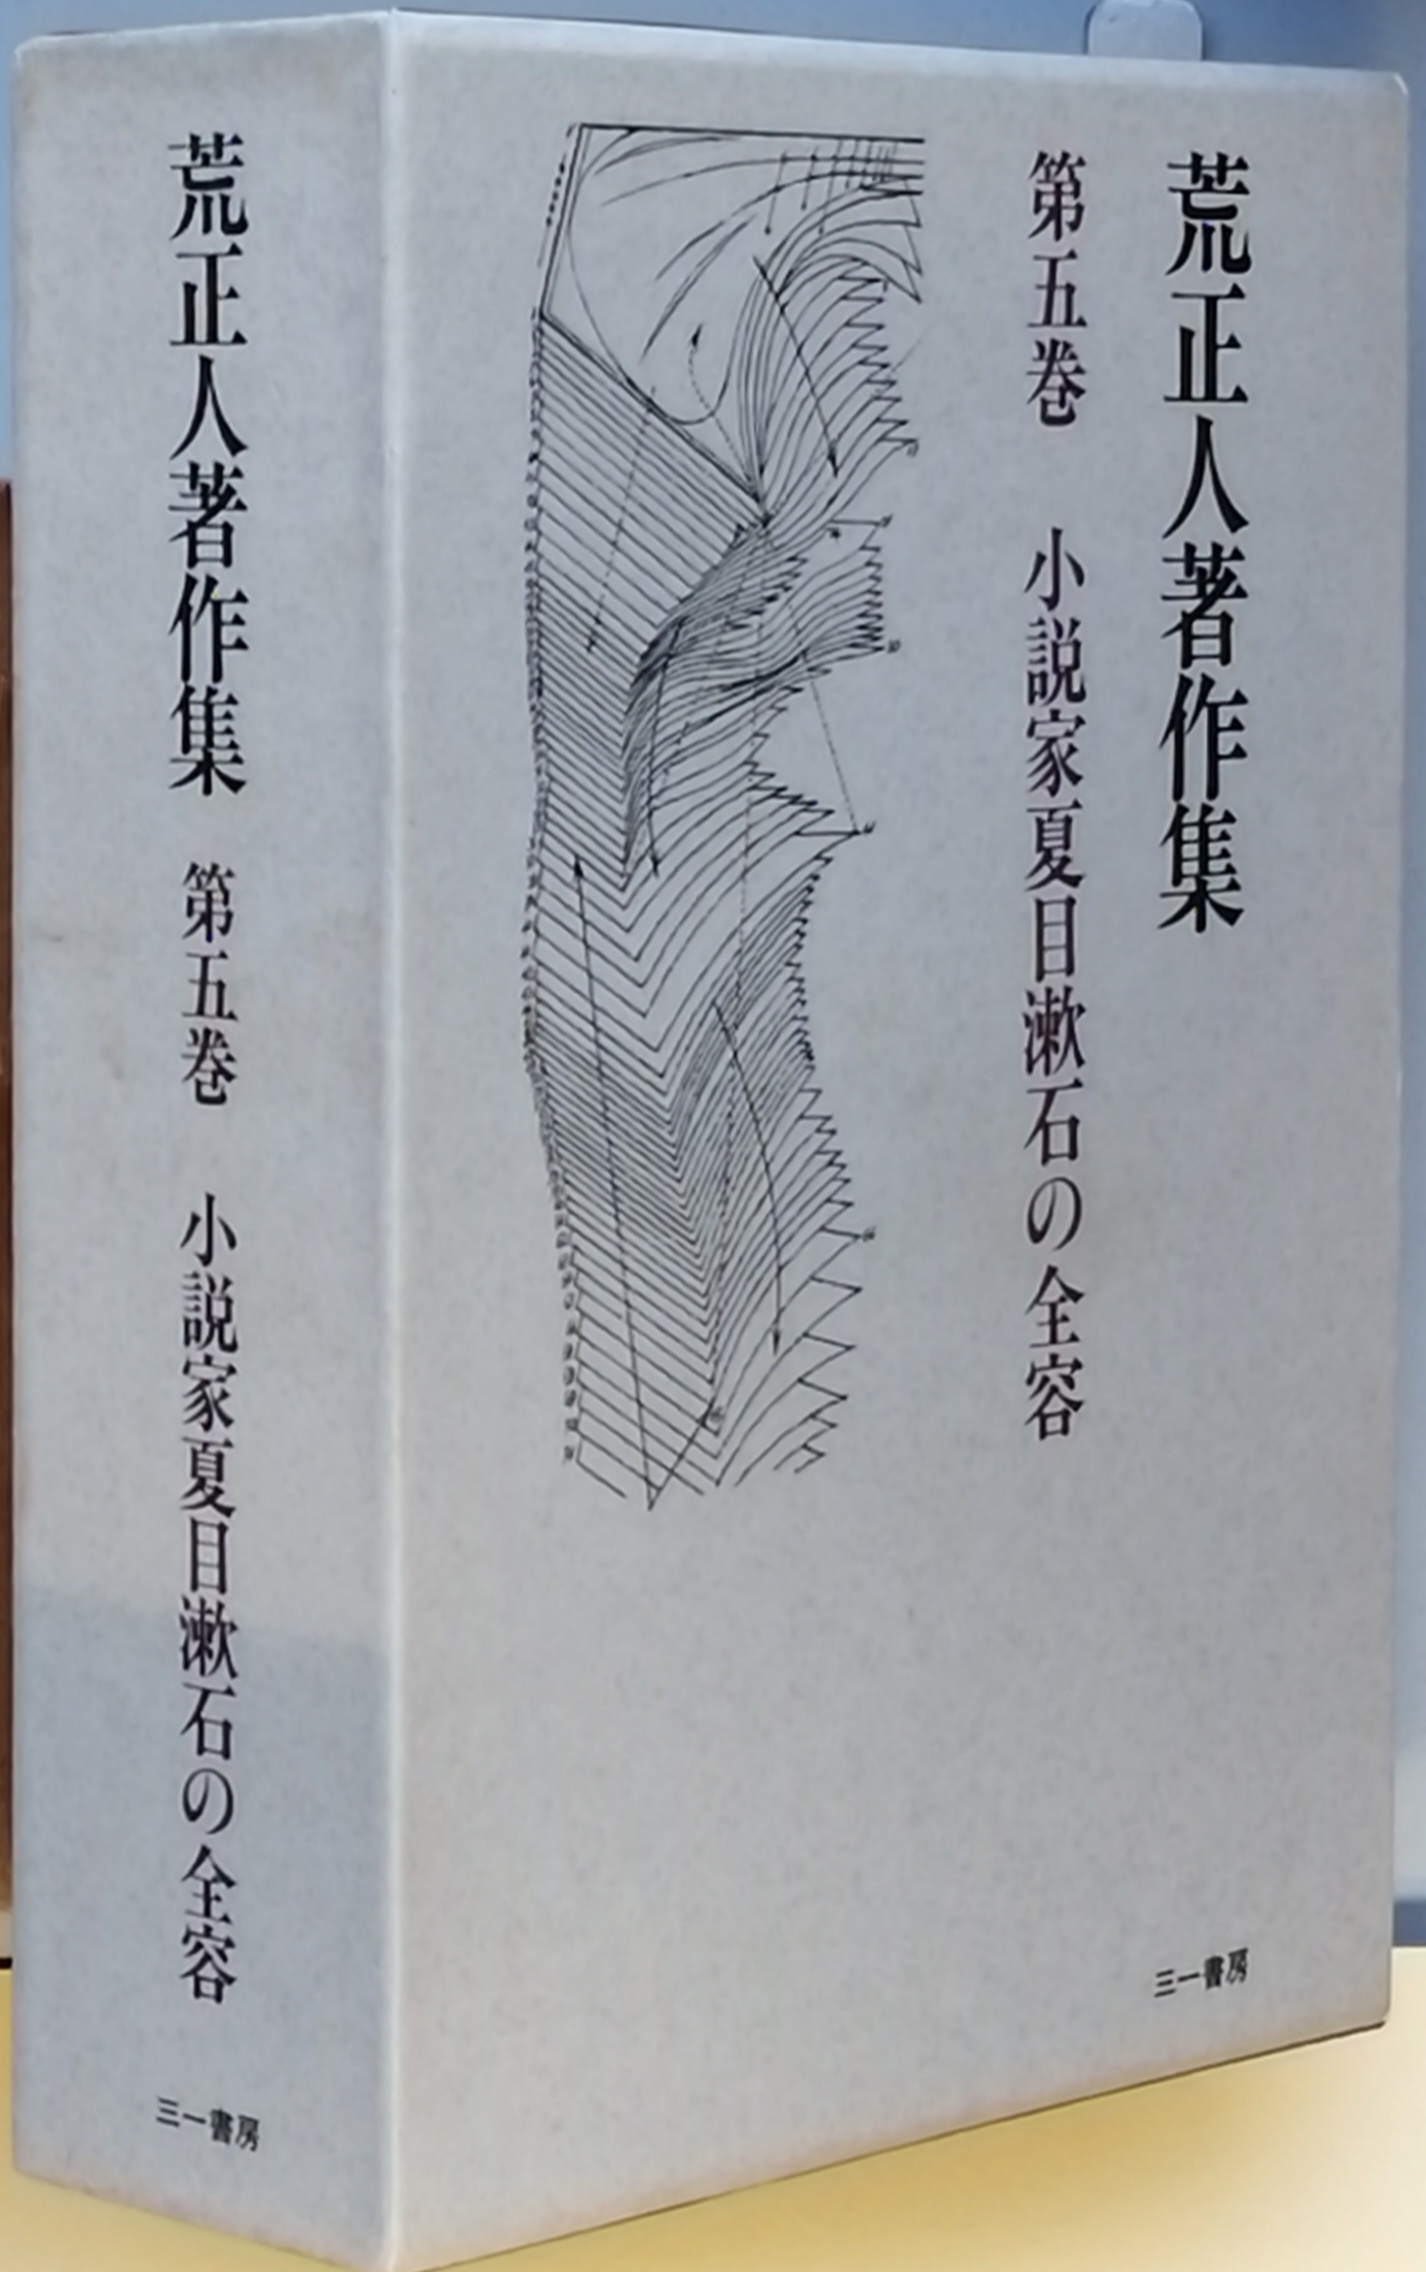 荒正人著作集
第五巻 小説家夏目漱石の全容
三一書房
荒正人著作集 第五巻 小説家夏目漱石の全容
三一書房